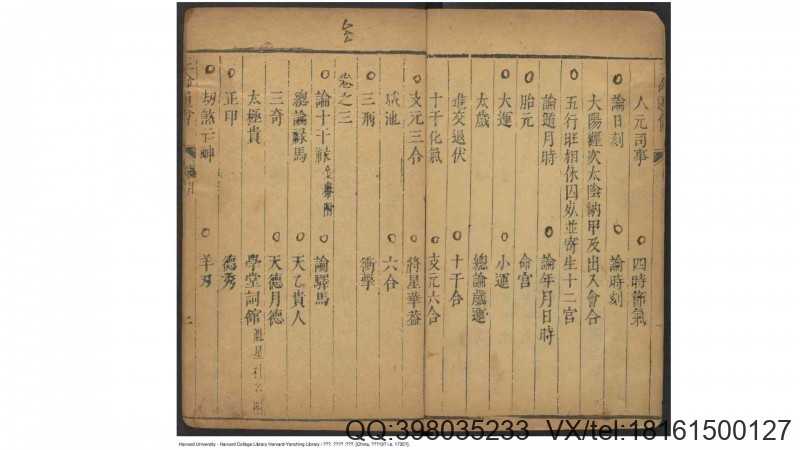 人元司事 四時節氣
論日刻 論時刻
大陽纏次太陰納甲及出入會合
五行旺相休囚並寄生十二宮
論遁月時 論年月日時
胎元 命宮
大運 小運
太歲 總論歲運
進交退伏 十干合
十干化氣 支元六合
支元三合 將星華蓋
咸池 六合
三刑 衝擊
卷之三
論十干祿 論驛馬
總論祿馬 天乙貴人
三奇 天德月德
太極貴 學堂詞館
正甲 德秀
劫煞亡神 羊刃
二
QQ:398035233 VX/tel:18161500127
Harvard University - Harvard College Library Harvard-Yenching Library